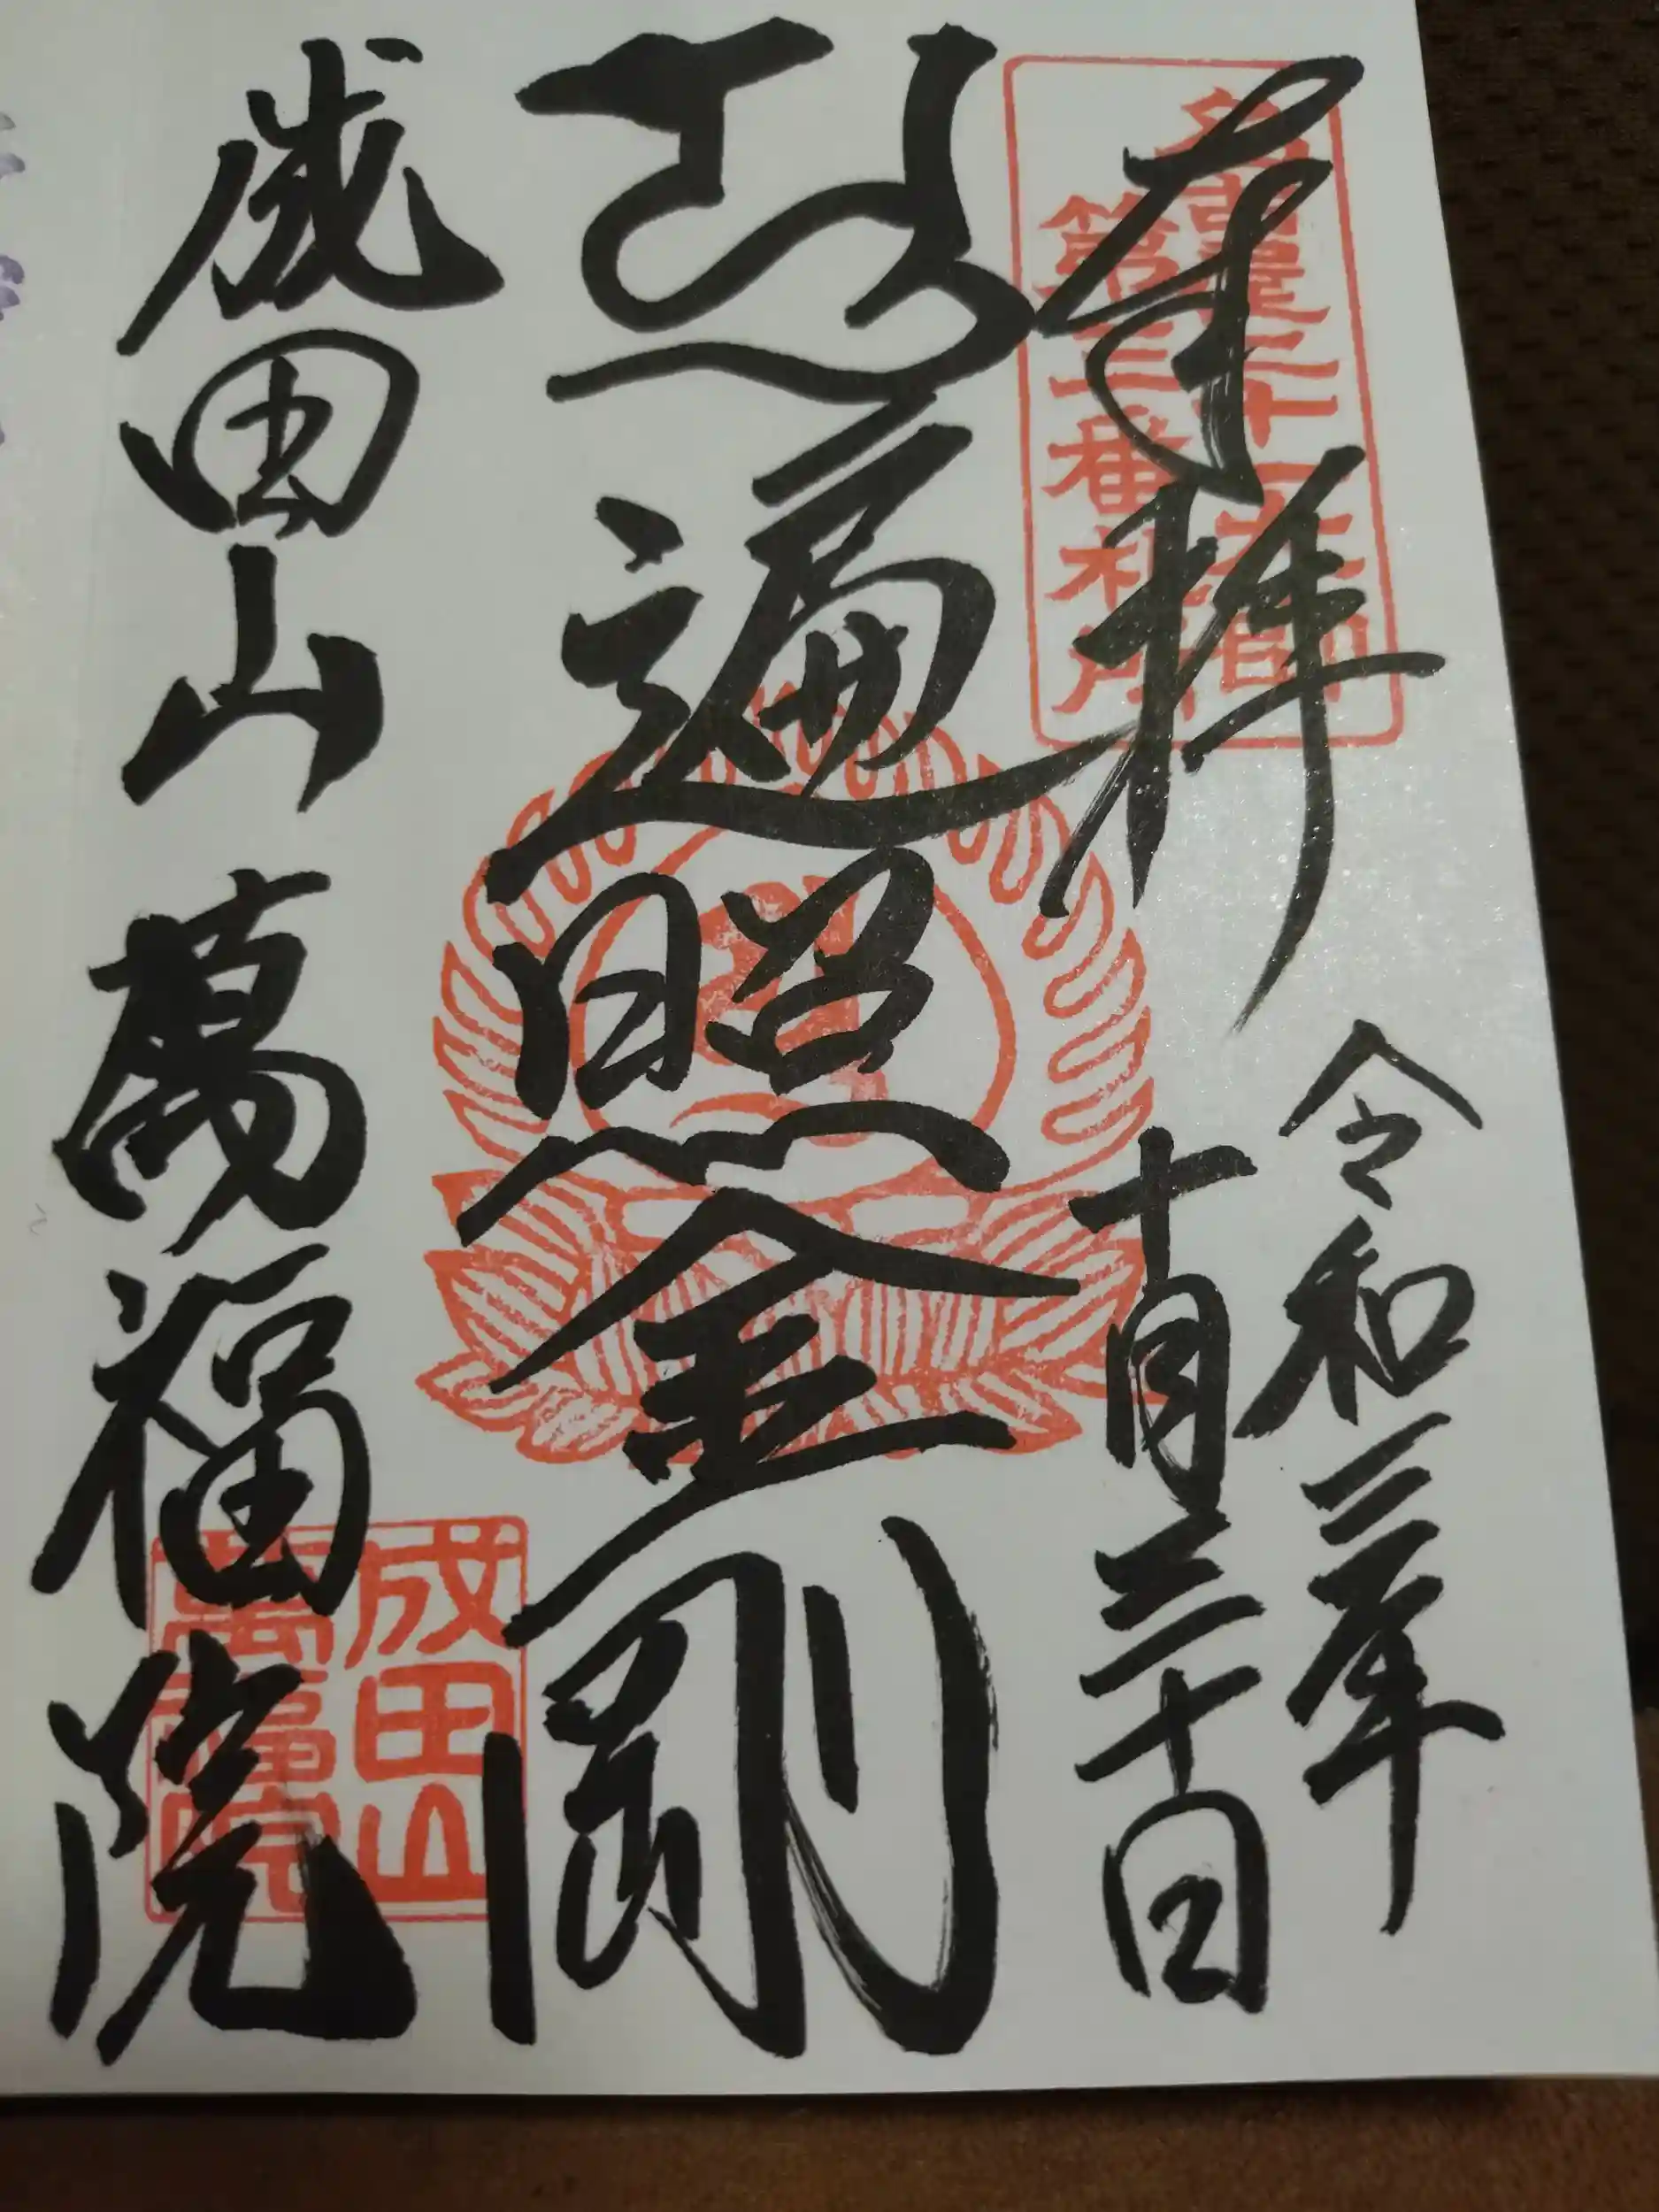 名古屋二十一大師
第三番札所
奉拝
令和二年
十月三十日
遍照金剛
成田山 萬福院
成田山
萬福院